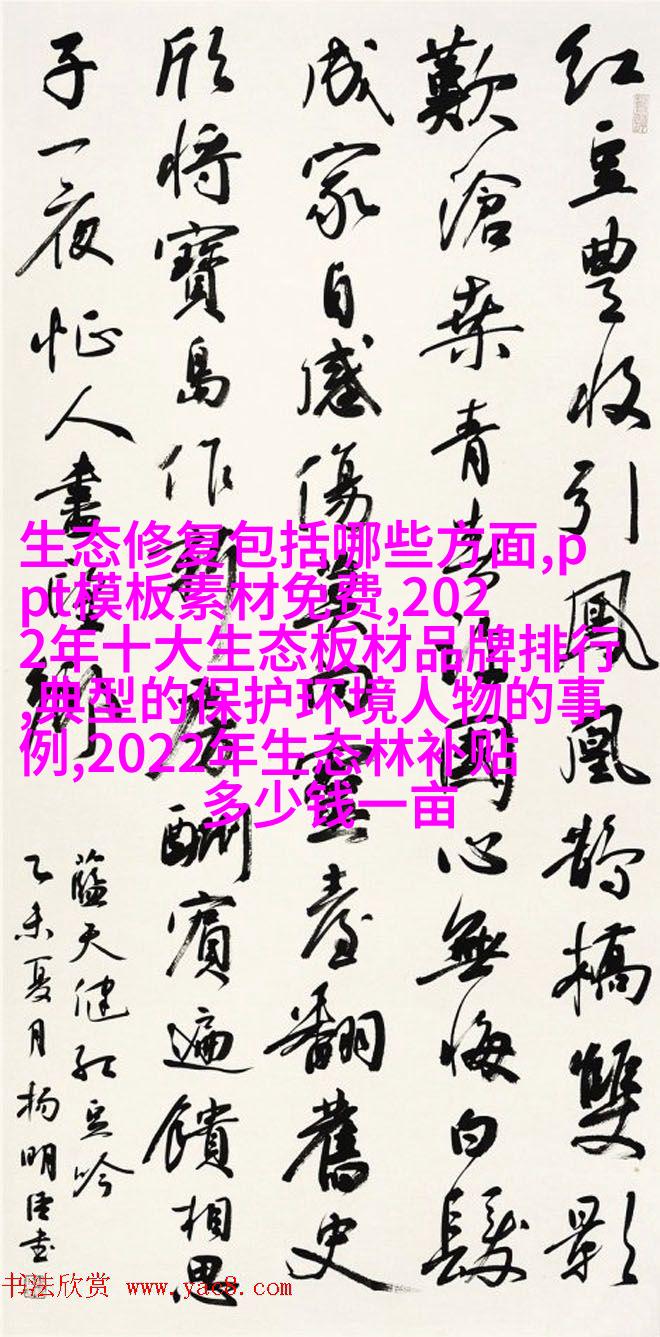 红豆豊收引鳳凰鵲橋雙影
歎滄桑青春許國心無悔白髮
成家自感傷莫向靈臺翻舊史
欣将寶島作新房酬賓遍饋相思
子一夜忙人鄉
蓝天健红豆吟
乙未夏月杨明臣书
生态修复包括哪些方面,p
pt模板素材免费,202
2年十大生态板材品牌排行
,典型的保护环境人物的事
例,2022年生态林补贴
多少钱一亩
书法欣赏 www.yac8.com